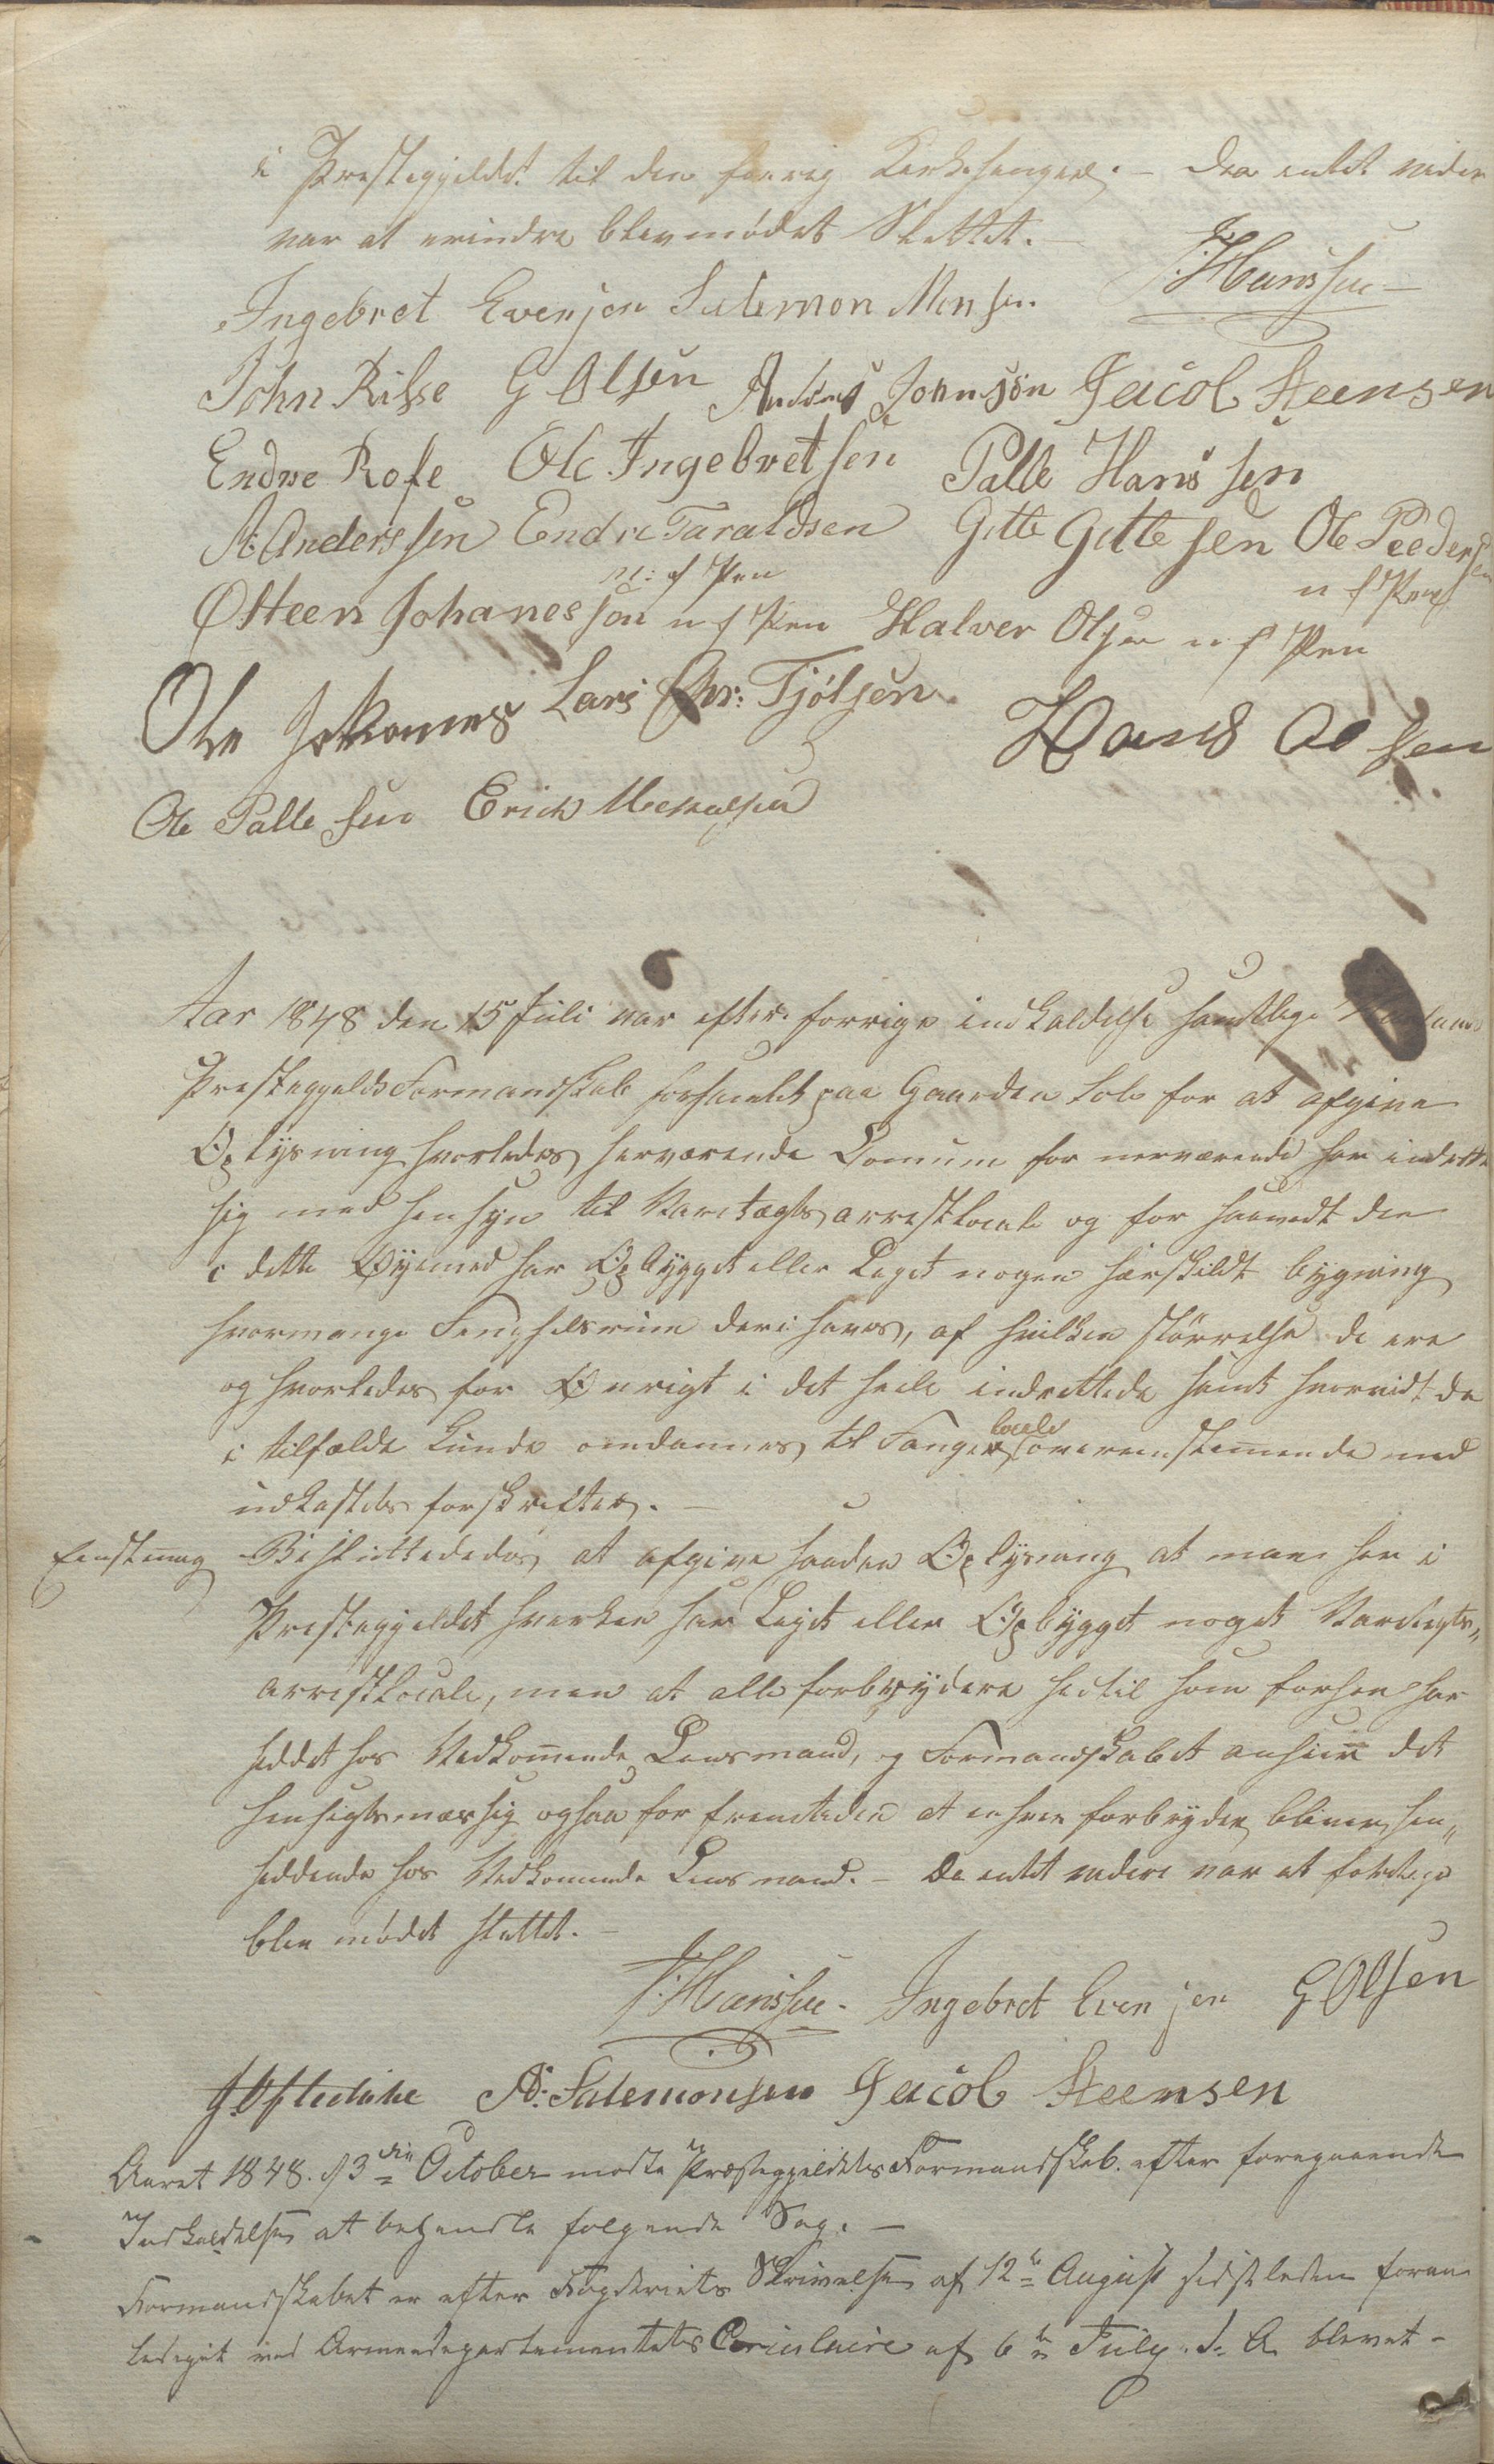 i Prestegjeldet til den forrig Kirkesanger. – Daa intet vider
var at erindre blev mødet Sluttet. –
J. Hanssen –
Ingebret Evensen Salemon Monsen.
John Risse G Olsen Anders Johnsøn Jacob Steensen
Endre Rofe Ole Ingebretsen Palle Hanssen
A: Anderssen Endre Taraldsen Gitle Gitlesen Ole Peedersen
m: f Pen n f Pen
Osteen Johanesson n f Pen Halver Olsen n f Pen
Ole Johannes Lars Chr: Tjölsen Hans Olsen
Ole Pallesen Erick
Aar 1848 den 15 Juli var efter forrige indkaldelse samtlige
Prestegjelds Formandskab forsamlet paa Gaarden Sole for at afgive
Oplysning hvorledes herværende Comune for nerværende har indrette
sig med hensyn til Varetægts arrestlocale og for saavidt der
i dette Øyemed har Opbygget eller Leyet nogen særskildt bygning
hvormange Fengselsrum deri haves, af hvilken størrelse de ere
og hvorledes for Øvrigt i det heele indrettede samt hvorvidt de
locale
i tilfælde kunde omdannes til Fange overeenstemende med
udkastets forskrifter. –
Eenstemig Besluttededes at afgive saadan Oplysning at man her i
Prestegjeldet hverken har Leyet eller Opbygget noget Varetegts„
arrestlocale, men at alle forbrydere hertil som forhen har
siddet hos Vedkommende Lensmand, og Formandskabet anseer det
hensigtsmæssig ogsaa for fremtiden at enhver forbryder bliver hen„
siddende hos Vedkommende Lensmand. – Da intet videre var at foretage
blev mødet sluttet. –
J. Hanssen. Ingebret Evensen G Olsen
A: Salemonsen Jacob Steensen
Aaret 1848. d 3die October modte Præstegjeldets Formandskab. efter foregaaende
Indkaldelse at behandle følgende Sag. –
Formandskabet er efter Fogderiets Skrivelse af 12te August sidstleden foran
lediget ved Armeedepartementets Circulaire af 6te July. d. A. blevet –